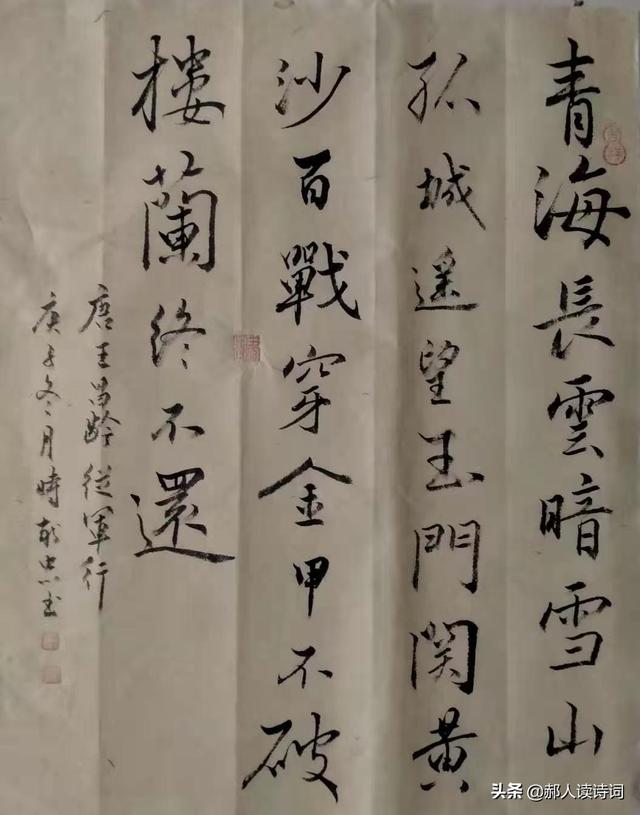 青海長雲暗雪山
孤城遥望玉門関黄
沙百戰穿金甲不破
樓蘭終不還
唐王昌齡從軍行
庚子冬月時
头条@郝人读诗词